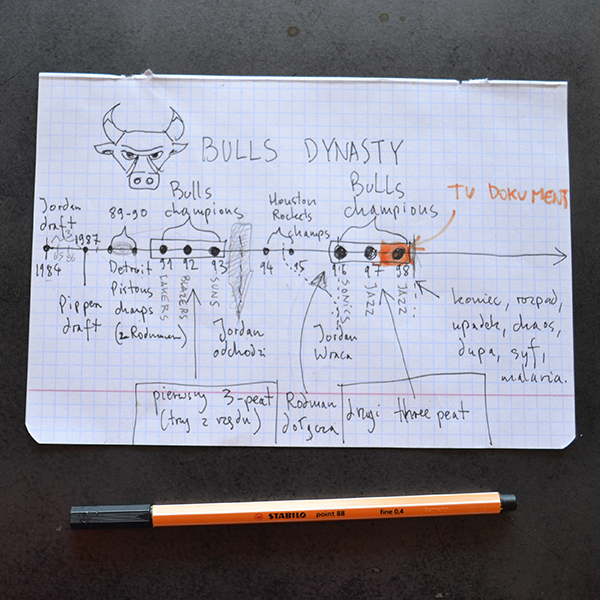 BULLS DYNASTY
Jordan
draft
1984
85
86
1987
Pippen
draft
89-90
Detroit
Pistons
champs
(z Rodmanem)
Bulls
champions
91
92
93
LAKERS
BLAZERS
SUNS
Jordan
odchodzi
Houston
Rockets
champs
94
95
Jordan
wraca
Bulls
champions
96
97
98
SONICS
JAZZ
JAZZ
TU DOKUMENT
koniec, rozpad,
upadek, chaos,
dupa, syf,
malaria.
pierwszy 3-peat
(trzy z rzędu)
Rodman
dołącza
drugi three peat
STABILO point 88 fine 0,4